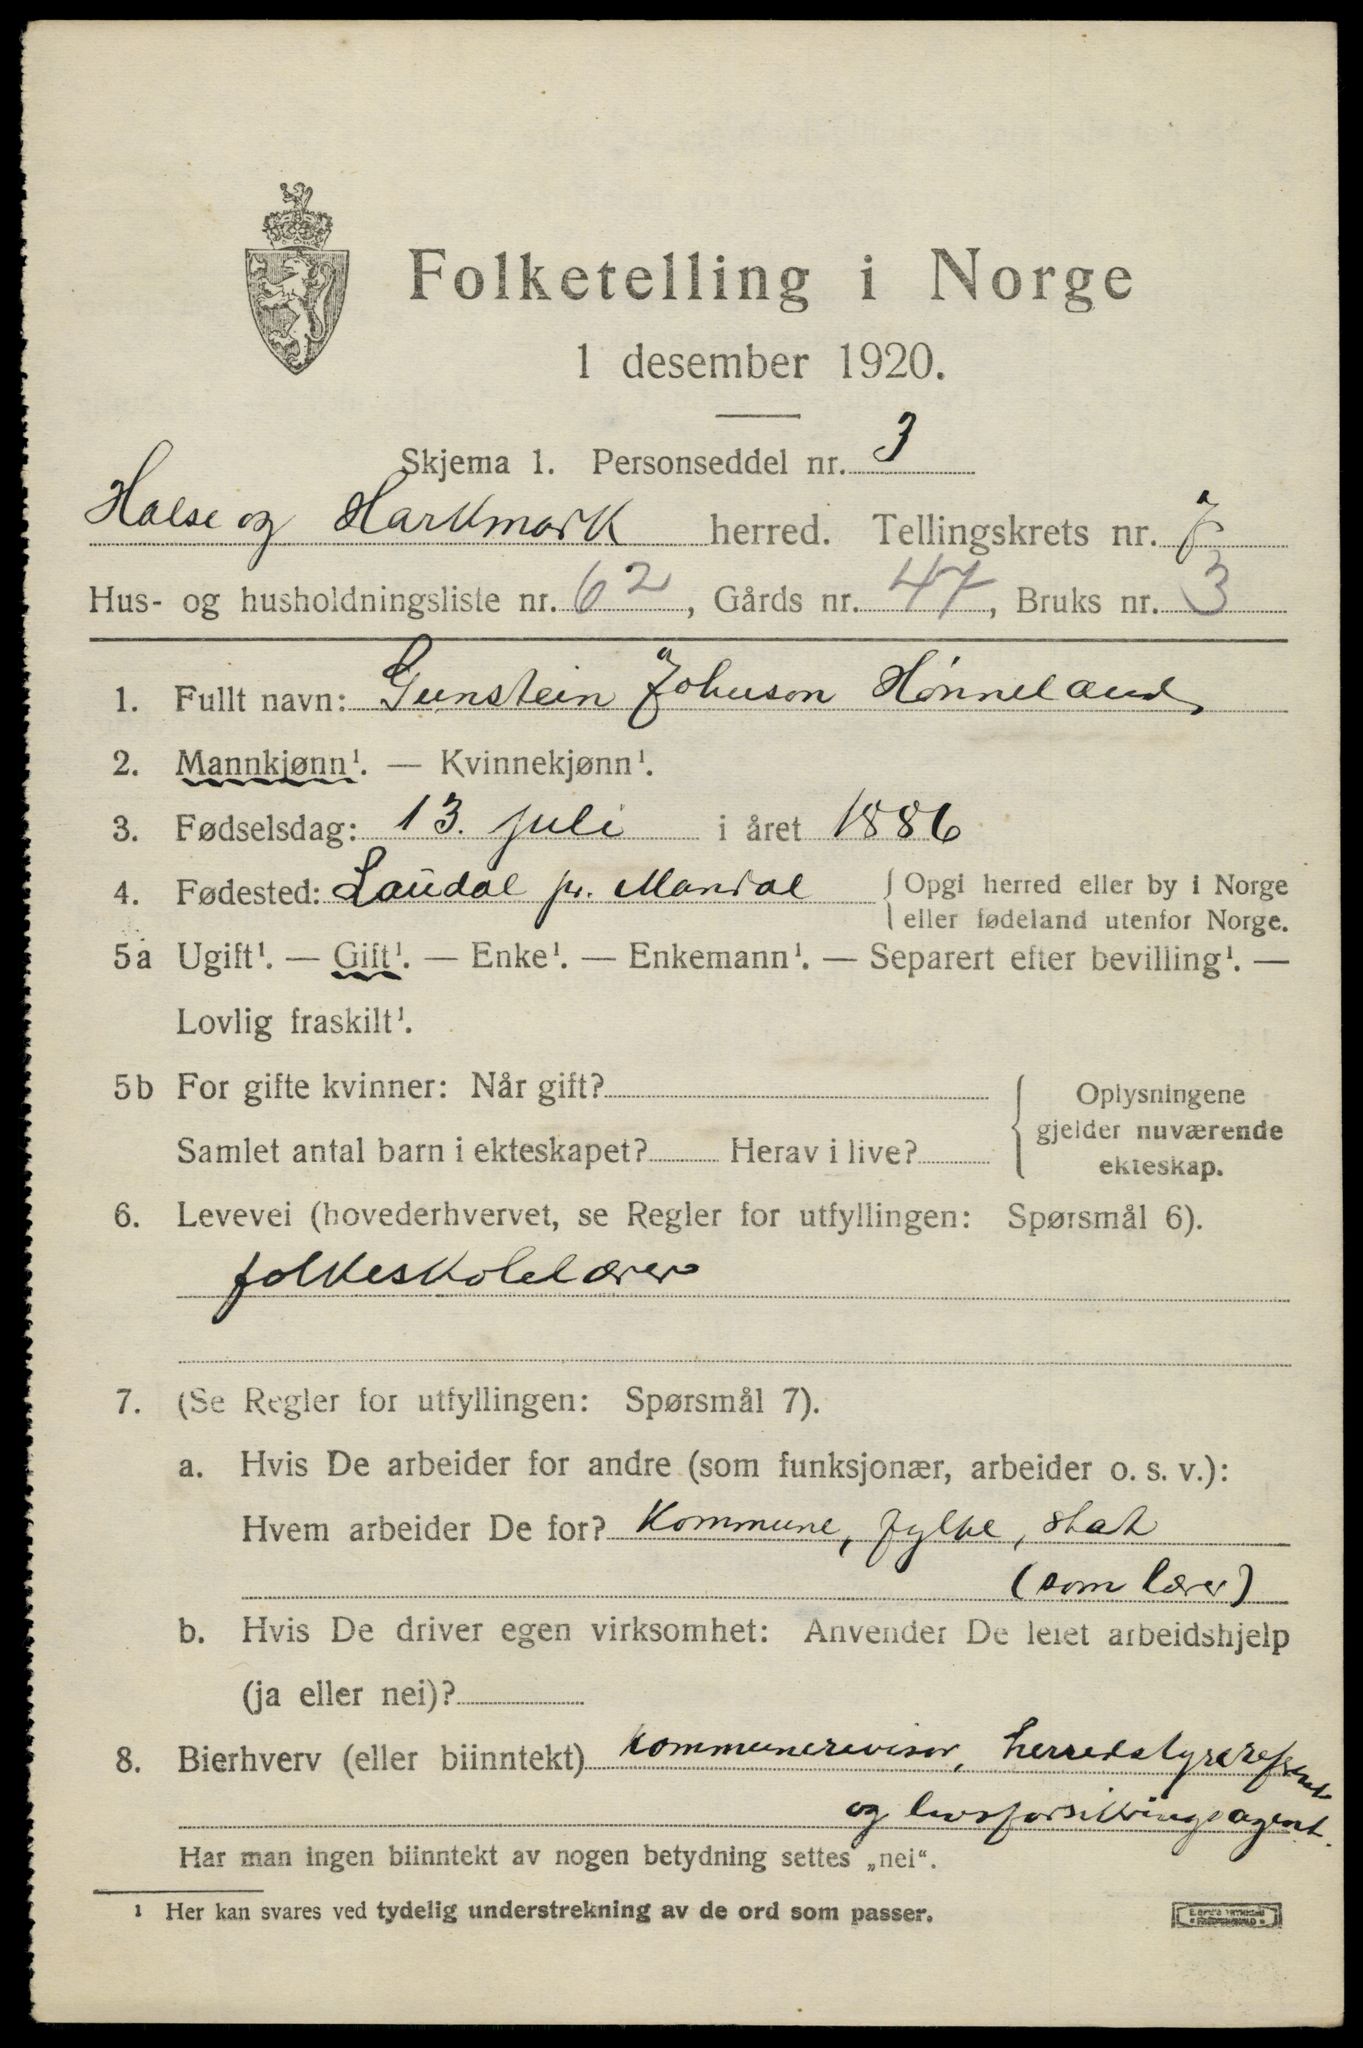 Folketelling i Norge
1 desember 1920.
Skjema 1. Personseddel nr. 3
Halse og Harkmark herred. Tellingskrets nr. 7
Hus- og husholdningsliste nr. 62, Gårds nr. 47, Bruks nr. 3
1. Fullt navn: Gunstein Johnson Hønneland
2. Mannkjønn¹. — Kvinnekjønn¹.
3. Fødselsdag: 13. juli i året 1886
4. Fødested: Laudal pr. Mandal { Opgi herred eller by i Norge
eller fødeland utenfor Norge.
5a Ugift¹. — Gift¹. — Enke¹. — Enkemann¹. — Separert efter bevilling¹. —
Lovlig fraskilt¹.
5b For gifte kvinner: Når gift?
Samlet antal barn i ekteskapet? Herav i live?
Oplysningene
gjelder nuværende
ekteskap.
6. Levevei (hovederhvervet, se Regler for utfyllingen: Spørsmål 6).
folkeskolelærer
7. (Se Regler for utfyllingen: Spørsmål 7).
a. Hvis De arbeider for andre (som funksjonær, arbeider o. s. v.):
Hvem arbeider De for? Kommune, fylke, stat
(som lærer)
b. Hvis De driver egen virksomhet: Anvender De leiet arbeidshjelp
(ja eller nei)?
8. Bierhverv (eller biinntekt) kommunerevisor,
og livsforsikringsagent.
Har man ingen biinntekt av nogen betydning settes „nei“.
¹ Her kan svares ved tydelig understrekning av de ord som passer.